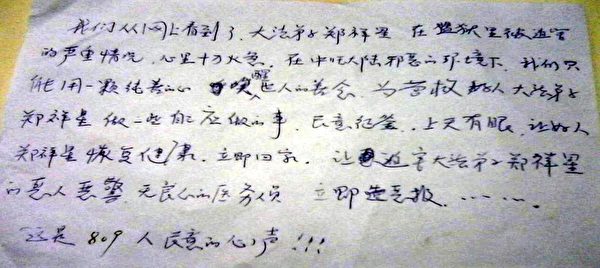 我们从网上看到了，大法弟子郑祥星 在监狱里被迫害
的严重情况，心里十万火急，在中共人间邪恶的环境下，我们只
能用一颗纯善的心 唤醒世人的善念，为营救好人大法弟子
郑祥星 做一些自己应做的事，民意征签，上天有眼，让好人
郑祥星恢复健康，立即回家，让迫害大法弟子郑祥星
的恶人恶警，无良心的医务人员 立即遭恶报，……。
这是 809 人民意的心声!!!